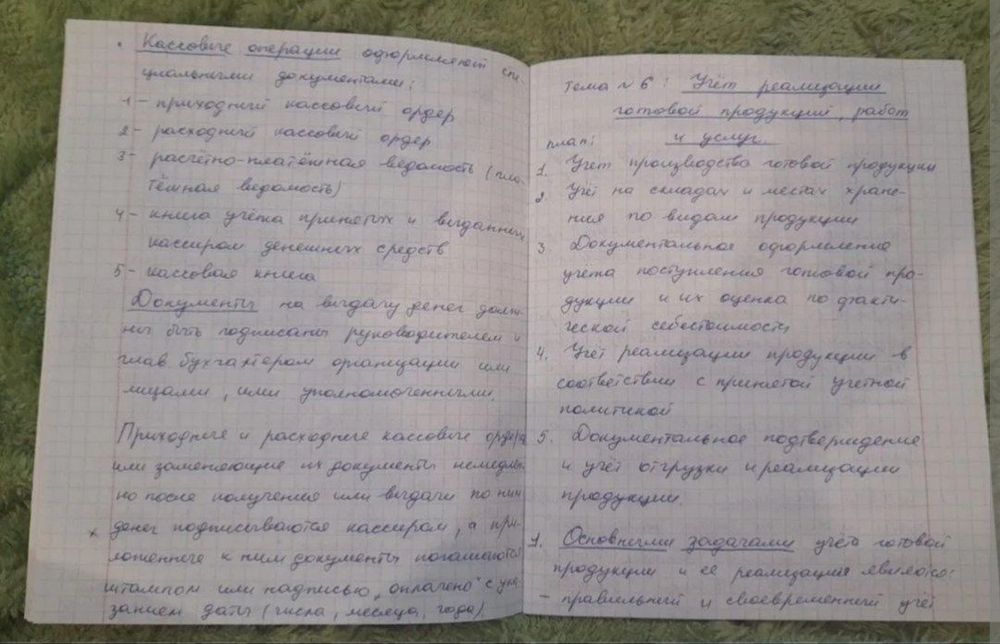 Кассовые операции оформляют спе-
циальными документами:
1 - приходный кассовый ордер
2 - расходный кассовый ордер
3 - расчётно-платёжная ведомость (пла-
тёжная ведомость)
4 - книга учёта принятых и выданных
кассиром денежных средств
5 - кассовая книга
Документы на выдачу денег долж-
ны быть подписаны руководителем и
глав бухгалтером организации или
лицами, ими уполномоченными.
Приходные и расходные кассовые ордера
или заменяющие их документы немедлен-
но после получения или выдачи по ним
× денег подписываются кассиром, а при-
ложенные к ним документы погашаются
штампом или надписью „оплачено" с ука-
занием даты (числа, месяца, года).
Тема №6: Учёт реализации
готовой продукции, работ
и услуг
план:
1. Учёт производства готовой продукции
2. Учёт на складах и местах хране-
ния по видам продукции
3. Документальное оформление
учёта поступления готовой про-
дукции и их оценка по факти-
ческой себестоимости
4. Учёт реализации продукции в
соответствии с принятой учётной
политикой
5. Документальное подтверждение
и учёт отгрузки и реализации
продукции.
1. Основными задачами учёта готовой
продукции и её реализации является:
- правильный и своевременный учёт